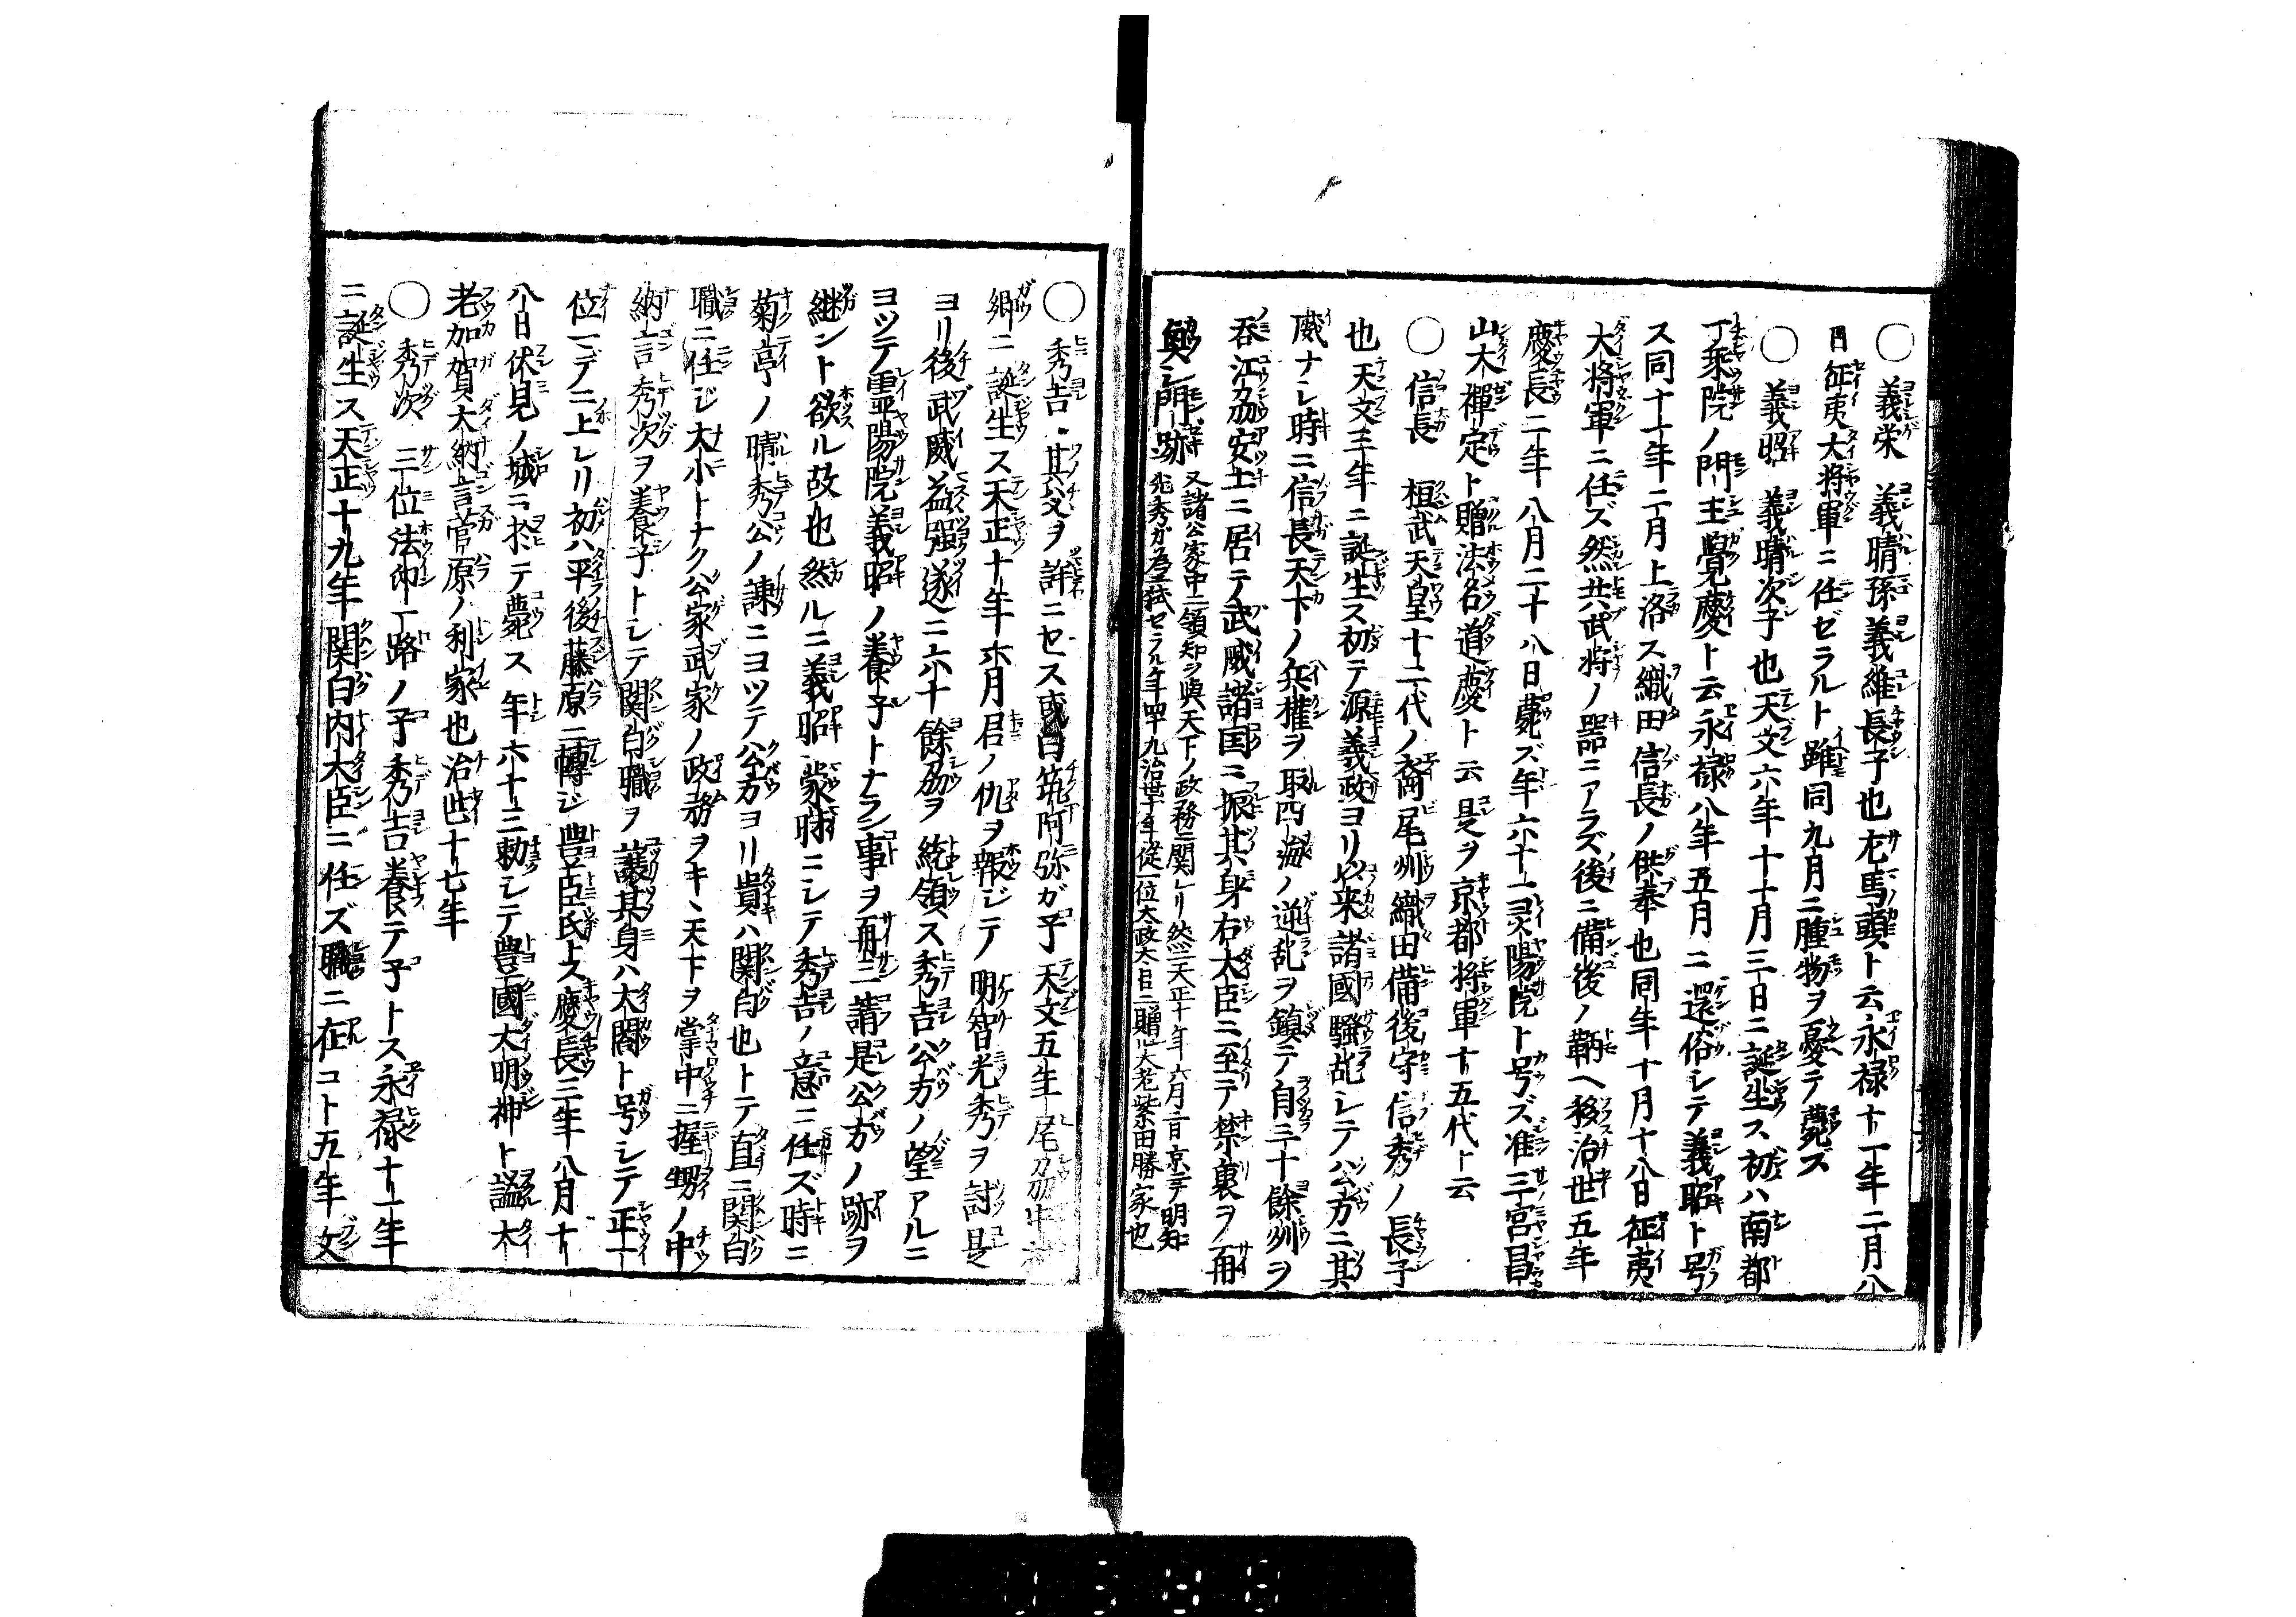 ○義栄 義晴孫義維長子也左馬頭ト云永禄十一年二月八
日征夷大将軍ニ任ゼラルト雖同九月ニ腫物ヲ憂テ薨ズ
○義昭 義晴次子也天文六年十一月三日ニ誕生ス初ハ南都
一乗院ノ門主覺慶ト云永禄八年五月ニ還俗シテ義昭ト号
ス同十一年二月上洛ス織田信長ノ供奉也同年十月十八日征夷
大将軍ニ任ズ然共武将ノ器ニアラズ後ニ備後ノ鞆ヘ移治世五年
慶長二年八月二十八日薨ズ年六十一霊陽院ト号ズ准三宮昌
山大禪定ト贈法名道慶ト云是ヲ京都将軍十五代ト云
○信長 桓武天皇十二代ノ裔尾州織田備後守信秀ノ長子
也天文三年ニ誕生ス初テ源義政ヨリ以来諸國騒乱シテ公方ニ其
威ナシ時ニ信長天下ノ兵権ヲ取四海ノ逆乱ヲ鎮テ自三十餘州ヲ
呑江刕安土ニ居テ武威諸国ニ振其身右大臣ニ至テ禁裏ヲ再
興シ門跡
又諸公家中ニ領知ヲ與天下ノ政務ニ関レリ然ニ天正十年六月二日京テ明知
光秀ガ為ニ弑セラル年四十九治世十年従一位太政大臣ニ贈ル大老柴田勝家也
○秀吉 其父ヲ詳ニセス或曰筑阿弥ガ子天文五生尾刕中
郷ニ誕生ス天正十年六月君ノ仇ヲ報ジテ明智光秀ヲ討是
ヨリ後武威益强遂ニ六十餘刕ヲ統領ス秀吉公方ノ望アルニ
ヨツテ霊陽院義昭ノ養子トナラン事ヲ再三請是公方ノ跡ヲ
継ント欲ル故也然ルニ義昭蒙昧ニシテ秀吉ノ意ニ任ズ時ニ
菊亭ノ晴秀公ノ諫ニヨツテ公方ヨリ貴ハ関白也トテ直ニ関白
職ニ任ジ大小トナク公家武家ノ政務ヲキヽ天下ヲ掌中ニ握甥ノ中
納言秀次ヲ養子トシテ関白職ヲ讓其身ハ太閤ト号シテ正一
位マデニ上レリ初ハ平後藤原ニ轉ジ豊臣氏トス慶長三年八月十
八日伏見ノ城ニ於テ薨ス年六十三勅シテ豊國大明神ト謚大
老加賀大納言菅原ノ利家也治世十七年
○秀次 三位法印一路ノ子秀吉養テ子トス永禄十一年
ニ誕生ス天正十九年関白内大臣ニ任ズ職ニ在コト五年文